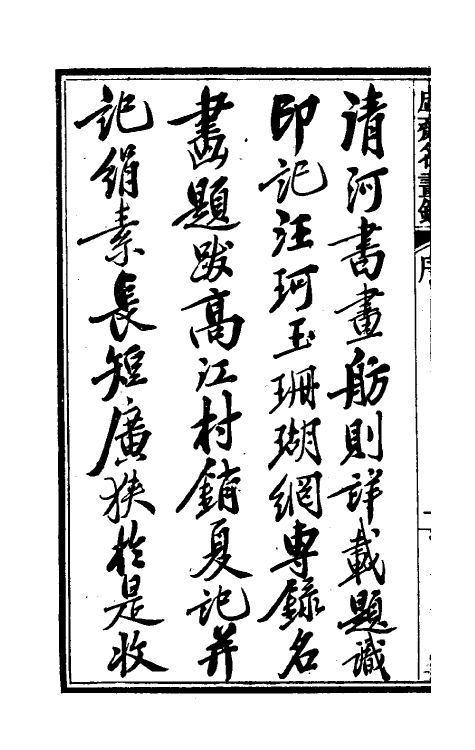 清河書畫舫則詳載題識
印記汪珂玉珊瑚網專錄名
畫題跋高江村銷夏記并
記絹素長短廣狹於是收